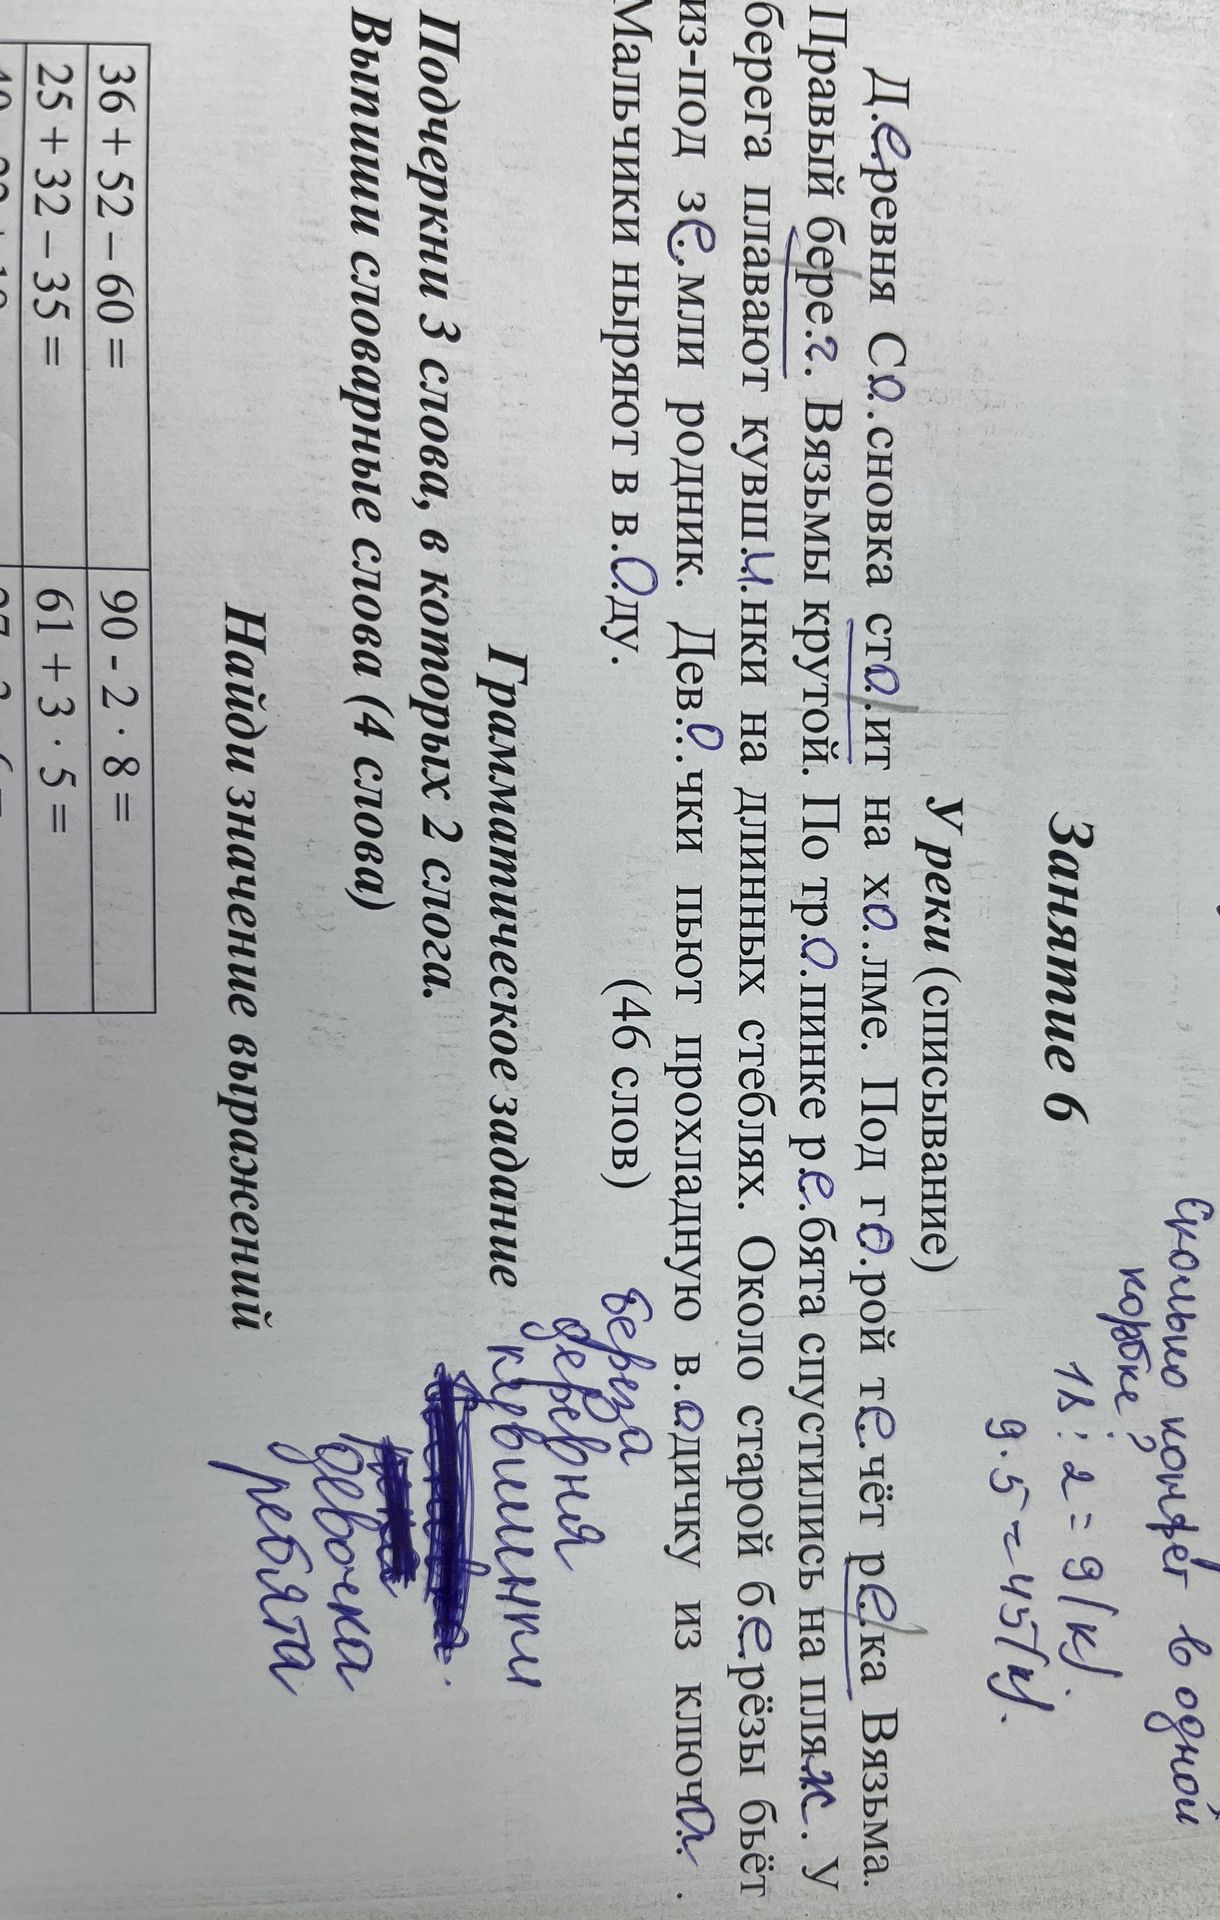 Сколько конфет в одной
коробке?
18 : 2 = 9 (к).
9 · 5 = 45 (к).
Занятие 6
У реки (списывание)
Деревня Сосновка стоит на холме. Под горой течёт река Вязьма.
Правый берег Вязьмы крутой. По тропинке ребята спустились на пляж. У
берега плавают кувшинки на длинных стеблях. Около старой берёзы бьёт
из-под земли родник. Девочки пьют прохладную водичку из ключа.
Мальчики ныряют в воду. (46 слов)
Грамматическое задание
Подчеркни 3 слова, в которых 2 слога.
Выпиши словарные слова (4 слова)
берза
деревня
кувшинки
девочка
ребята
Найди значение выражений
36 + 52 – 60 = 90 - 2 · 8 =
25 + 32 – 35 = 61 + 3 · 5 =